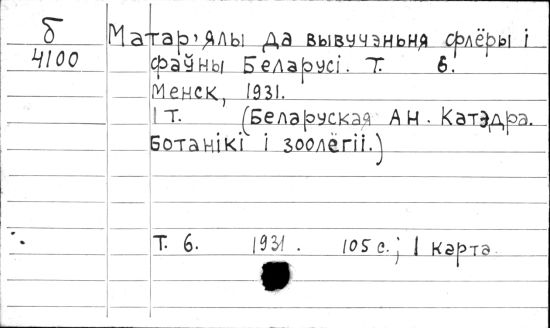 б
4100
Матар'ялы да вывучэньня флёры і
фаўны Беларусі. Т. 6.
Менск, 1931.
1 т. (Беларуская АН. Катэдра.
Ботанікі і зоолёгіі.)
Т. 6. 1931. 105 с.; 1 карта